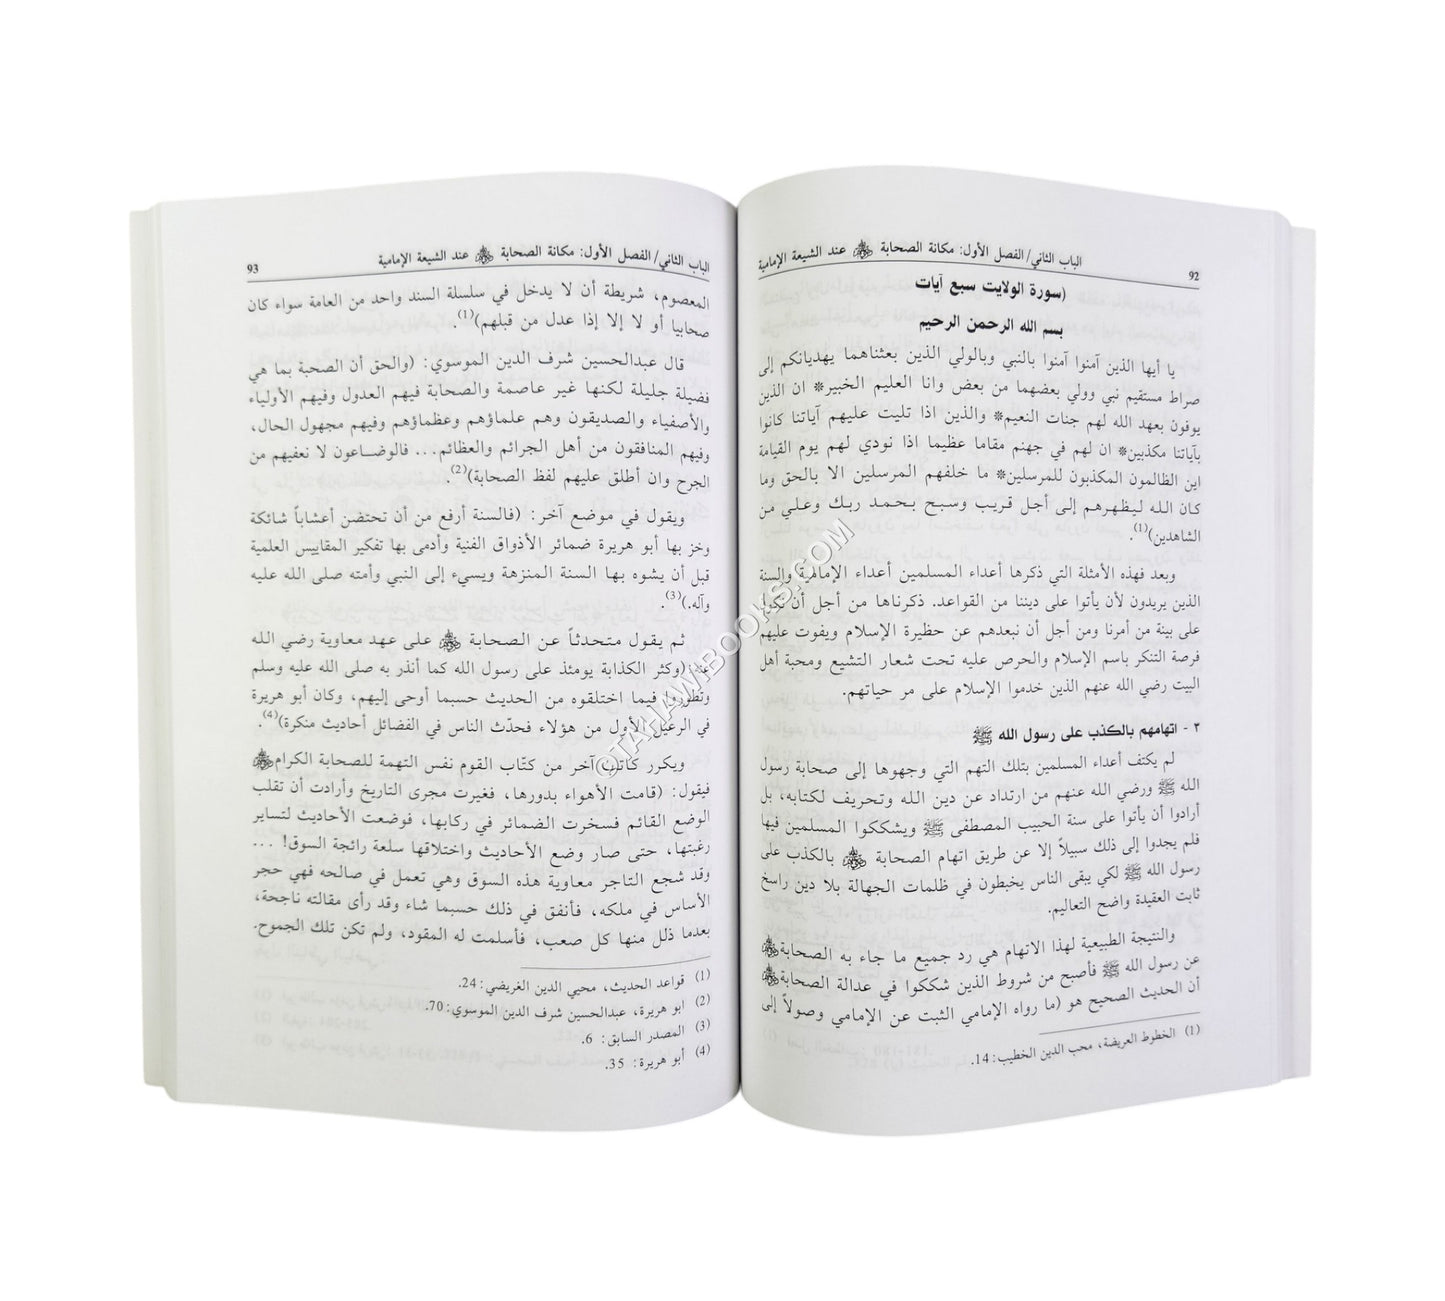 92
الباب الثاني/ الفصل الأول: مكانة الصحابة عند الشيعة الإمامية
(سورة الولايت سبع آيات
بسم الله الرحمن الرحيم
يا أيها الذين آمنوا آمنوا بالنبي وبالولي الذين بعثناهما يهديانكم إلى
صراط مستقيم نبي وولي بعضهما من بعض وانا العليم الخبير* ان الذين
يوفون بعهد الله لهم جنات النعيم* والذين اذا تليت عليهم آياتنا كانوا
بآياتنا مكذبين* ان لهم في جهنم مقاما عظيما اذا نودي لهم يوم القيامة
اين الظالمون المكذبون للمرسلين* ما خلفهم المرسلين الا بالحق وما
كان الله ليظهرهم إلى أجل قريب وسبح بحمد ربك وعلي من
الشاهدين)(1).
وبعد فهذه الأمثلة التي ذكرها أعداء المسلمين أعداء الإمامية والسنة
الذين يريدون لأن يأتوا على ديننا من القواعد. ذكرناها من أجل أن نكون
على بينة من أمرنا ومن أجل أن نبعدهم عن حظيرة الإسلام ويفوت عليهم
فرصة التنكر باسم الإسلام والحرص عليه تحت شعار التشيع ومحبة أهل
البيت رضي الله عنهم الذين خدموا الإسلام على مر حياتهم.
٣ - اتهامهم بالكذب على رسول الله ﷺ
لم يكتف أعداء المسلمين بتلك التهم التي وجهوها إلى صحابة رسول
الله ﷺ ورضي الله عنهم من ارتداد عن دين الله وتحريف لكتابه، بل
أرادوا أن يأتوا على سنة الحبيب المصطفى ﷺ ويشككوا المسلمين فيها
فلم يجدوا إلى ذلك سبيلاً إلا عن طريق اتهام الصحابة بالكذب على
رسول الله ﷺ لكي يبقى الناس يخبطون في ظلمات الجهالة بلا دين راسخ
ثابت العقيدة واضح التعاليم.
والنتيجة الطبيعية لهذا الاتهام هي رد جميع ما جاء به الصحابة
عن رسول الله ﷺ فأصبح من شروط الذين شككوا في عدالة الصحابة
أن الحديث الصحيح هو (ما رواه الإمامي الثبت عن الإمامي وصولاً إلى
(1) الخطوط العريضة، محب الدين الخطيب: 14.
الباب الثاني/ الفصل الأول: مكانة الصحابة عند الشيعة الإمامية
93
المعصوم، شريطة أن لا يدخل في سلسلة السند واحد من العامة سواء كان
صحابيا أو لا إلا إذا عدل من قبلهم)(1).
قال عبدالحسين شرف الدين الموسوي: (والحق أن الصحبة بما هي
فضيلة جليلة لكنها غير عاصمة والصحابة فيهم العدول وفيهم الأولياء
والأصفياء والصديقون وهم علماؤهم وعظماؤهم وفيهم مجهول الحال،
وفيهم المنافقون من أهل الجرائم والعظائم... فالوضاعون لا نعفيهم من
الجرح وان أطلق عليهم لفظ الصحابة)(2).
ويقول في موضع آخر: (فالسنة أرفع من أن تحتضن أعشاباً شائكة
وخز بها أبو هريرة ضمائر الأذواق الفنية وأدمى بها تفكير المقاييس العلمية
قبل أن يشوه بها السنة المنزهة ويسيء إلى النبي وأمته صلى الله عليه
وآله.)(3).
ثم يقول متحدثاً عن الصحابة على عهد معاوية رضي الله
عنه: (وكثر الكذابة يومئذ على رسول الله كما أنذر به صلى الله عليه وسلم
وتطوروا فيما اختلقوه من الحديث حسبما أوحى إليهم، وكان أبو هريرة
في الرعيل الأول من هؤلاء فحدّث الناس في الفضائل أحاديث منكرة)(4).
ويكرر كاتب آخر من كتّاب القوم نفس التهمة للصحابة الكرام
فيقول: (قامت الأهواء بدورها، فغيرت مجرى التاريخ وأرادت أن تقلب
الوضع القائم فسخرت الضمائر في ركابها، فوضعت الأحاديث لتساير
رغبتها، حتى صار وضع الأحاديث واختلاقها سلعة رائجة السوق! ...
وقد شجع التاجر معاوية هذه السوق وهي تعمل في صالحه فهي حجر
الأساس في ملكه، فأنفق في ذلك حسبما شاء وقد رأى مقالته ناجحة،
بعدما ذلل منها كل صعب، فأسلمت له المقود، ولم تكن تلك الجموح.
(1) قواعد الحديث، محيي الدين الغريضي: 24.
(2) ابو هريرة، عبدالحسين شرف الدين الموسوي: 70.
(3) المصدر السابق: 6.
(4) أبو هريرة: 35.
©TAHAWIBOOKS.COM